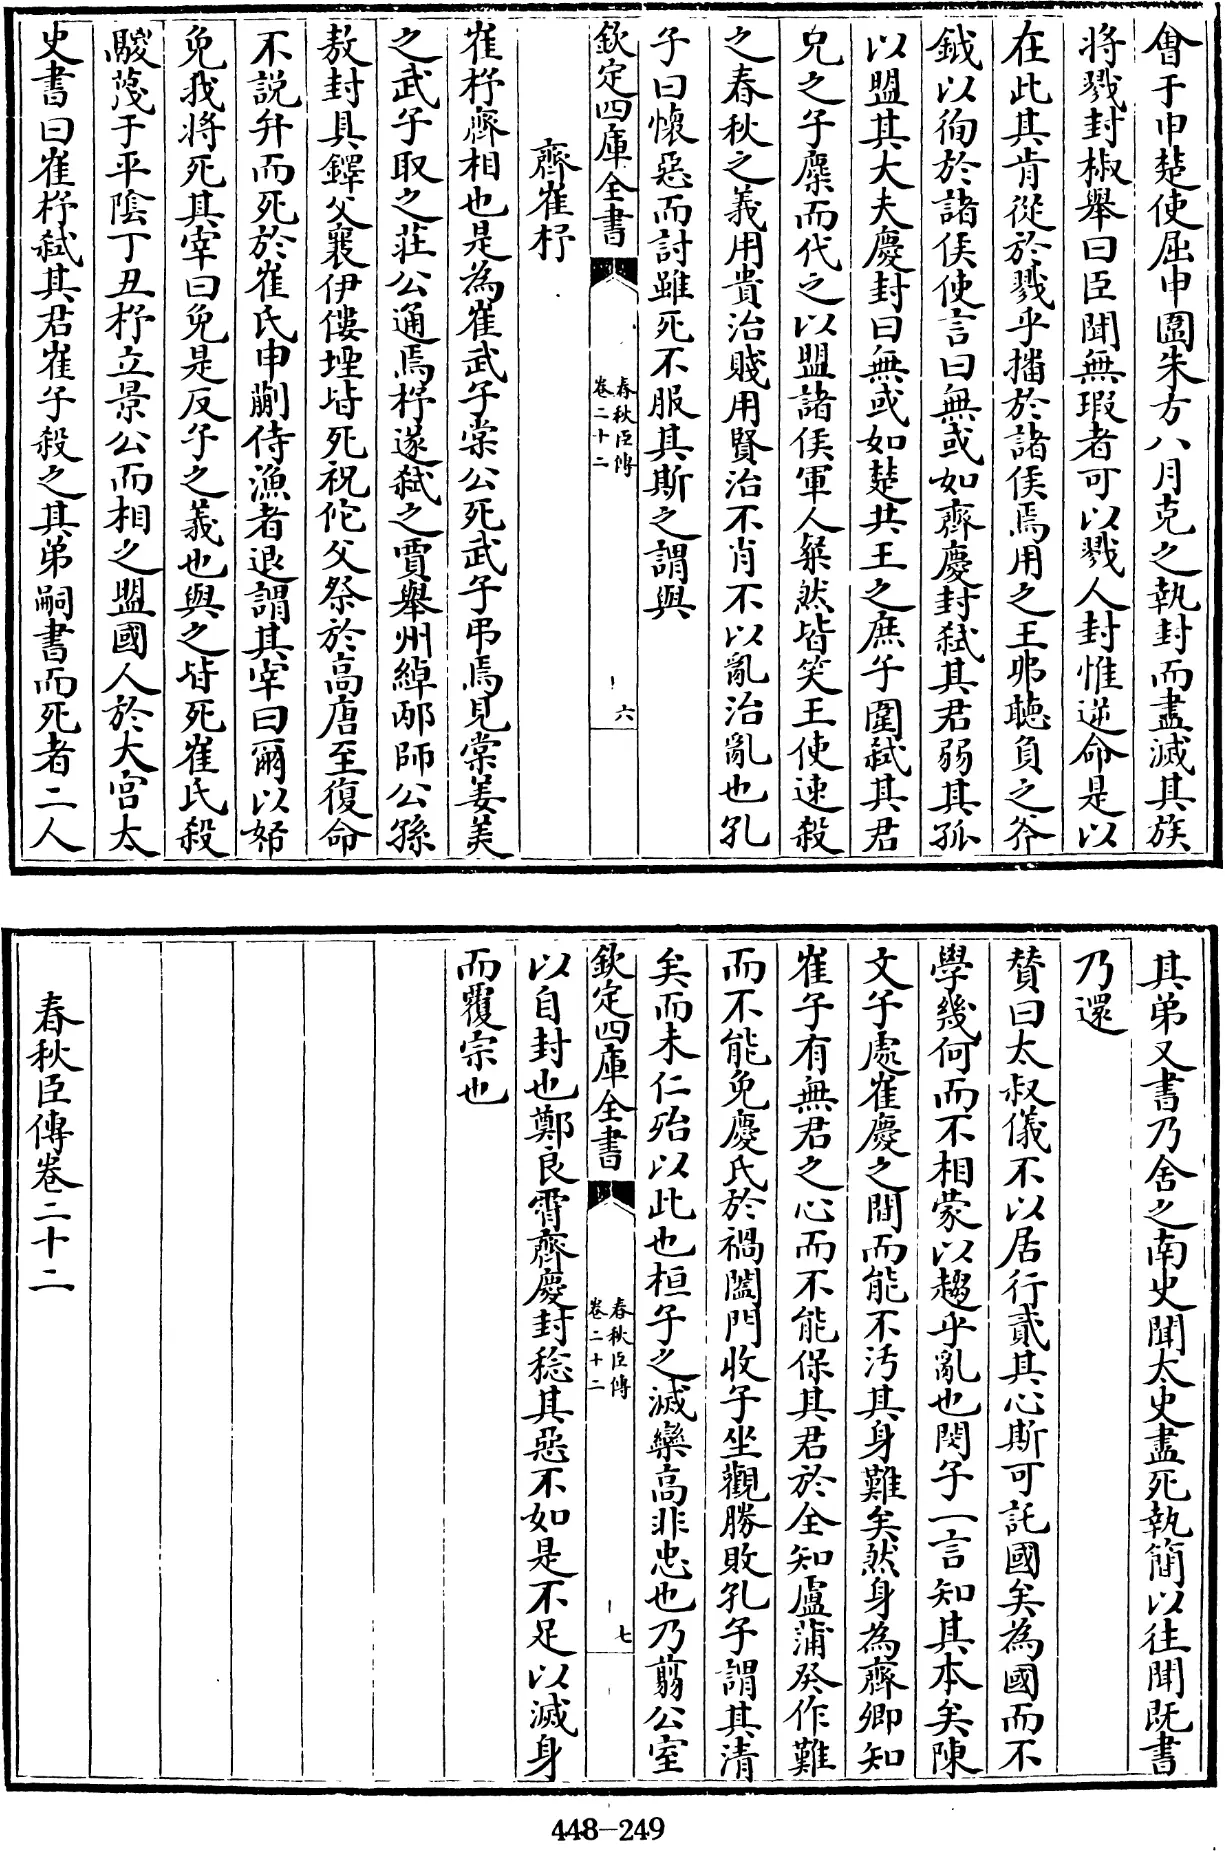 會于申楚使屈申圍朱方八月克之執封而盡滅其族
將戮封椒舉曰臣聞無瑕者可以戮人封惟逆命是以
在此其肯從於戮乎播於諸侯焉用之王弗聽負之斧
鉞以徇於諸侯使言曰無或如齊慶封弑其君弱其孤
以盟其大夫慶封曰無或如楚共王之庶子圍弑其君
兄之子麇而代之以盟諸侯軍人粲然皆笑王使速殺
之春秋之義用貴治賤用賢治不肖不以亂治亂也孔
子曰懷惡而討雖死不服其斯之謂與
欽定四庫全書
春秋臣傳
卷二十二
六
齊崔杼
崔杼齊相也是為崔武子棠公死武子弔焉見棠姜美
之武子取之莊公通焉杼遂弑之賈舉州綽邴師公孫
敖封具鐸父襄伊僂堙皆死祝佗父祭於高唐至復命
不説弁而死於崔氏申蒯侍漁者退謂其宰曰爾以帑
免我將死其宰曰免是反子之義也與之皆死崔氏殺
鬷蔑于平陰丁丑杼立景公而相之盟國人於大宫太
史書曰崔杼弑其君崔子殺之其弟嗣書而死者二人
其弟又書乃舍之南史聞太史盡死執簡以往聞既書
乃還
賛曰太叔儀不以居行貳其心斯可託國矣為國而不
學幾何而不相蒙以趨乎亂也閔子一言知其本矣陳
文子處崔慶之間而能不污其身難矣然身為齊卿知
崔子有無君之心而不能保其君於全知盧蒲癸作難
而不能免慶氏於禍闔門收子坐觀勝敗孔子謂其清
矣而未仁殆以此也桓子之滅欒高非忠也乃翦公室
欽定四庫全書
春秋臣傳
卷二十二
七
以自封也鄭良霄齊慶封稔其惡不如是不足以滅身
而覆宗也
春秋臣傳卷二十二
448-249